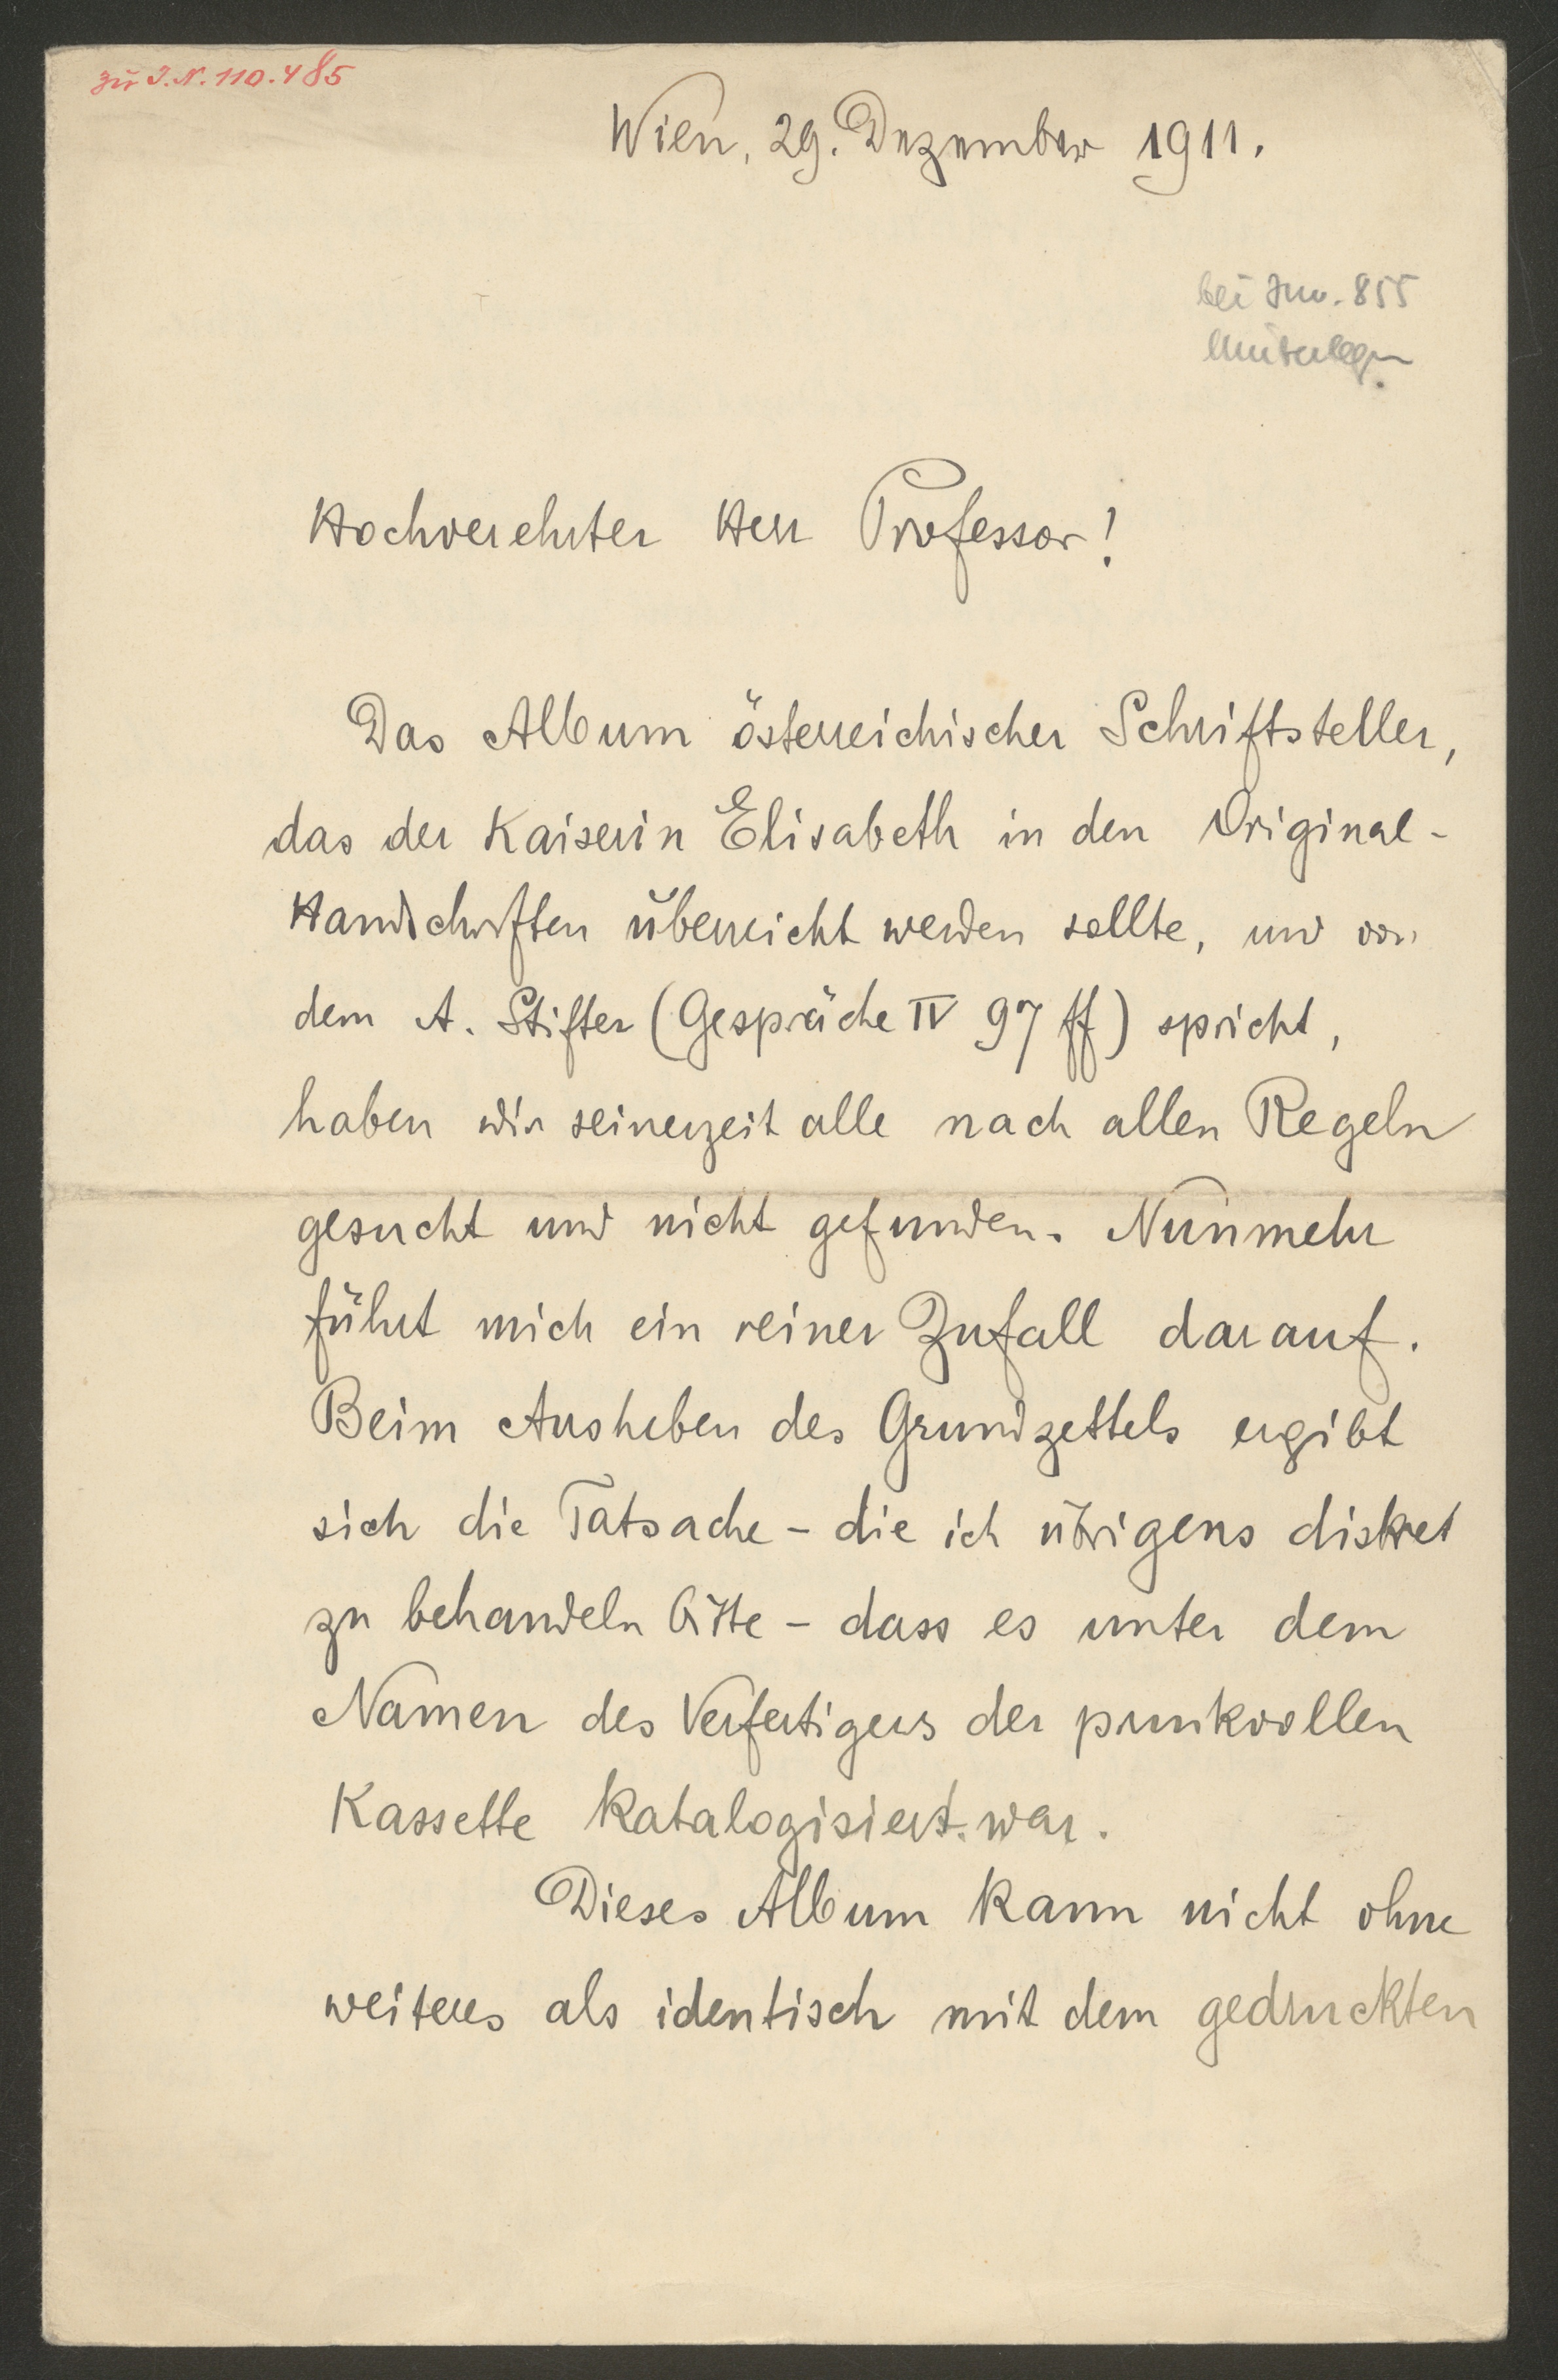 zu I.N. 110.485
Wien, 29. Dezember 1911.
bei Inv. 855
Hochverehrter Herr Professor!
Das Album österreichischer Schriftsteller,
das der Kaiserin Elisabeth in den Original-
Handschriften überreicht werden sollte, und von
dem A. Stifter (Gespräche IV 97 ff) spricht,
haben wir seinerzeit alle nach allen Regeln
gesucht und nicht gefunden. Nunmehr
führt mich ein reiner Zufall darauf.
Beim Ausheben des Grundzettels ergibt
sich die Tatsache – die ich übrigens diskret
zu behandeln bitte – dass es unter dem
Namen des Verfertigers der prunkvollen
Kassette katalogisiert war.
Dieses Album kann nicht ohne
weiteres als identisch mit dem gedruckten